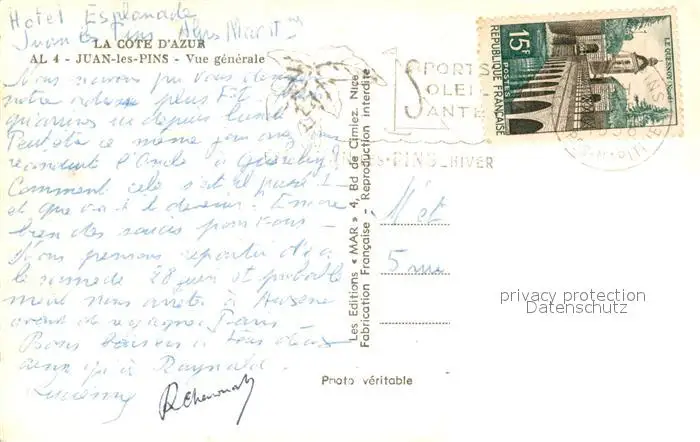 Hotel Esplanade
Juan les Pins Alpes Marit mes
LA COTE D'AZUR
AL 4 - JUAN-les-PINS - Vue générale
Nous n'avons pu vous donner
notre adresse plus tôt
qu'arrivés ici depuis lundi
Peut être ce même jour avez vous
reconduit l'Oncle à
Comment cela s'est il passé ?
et que va-t il devenir. Encore
bien des soucis pour vous -
Nous pensons repartir d'ici
le samedi 28 juin et probable
ment nous arrêter à Auxerre
avant de regagner Paris -
Bons baisers à tous deux
ainsi qu'à Raynald.
Lucienne
Les Editions « MAR » 4, Bd de Cimiez, Nice
Fabrication Française - Reproduction interdite
SPORTS
SOLEIL
SANTE
JUAN-LES-PINS HIVER
15F
POSTES
REPUBLIQUE FRANÇAISE
LE QUESNOY (Nord)
M et
5 rue
privacy protection
Datenschutz
Photo véritable